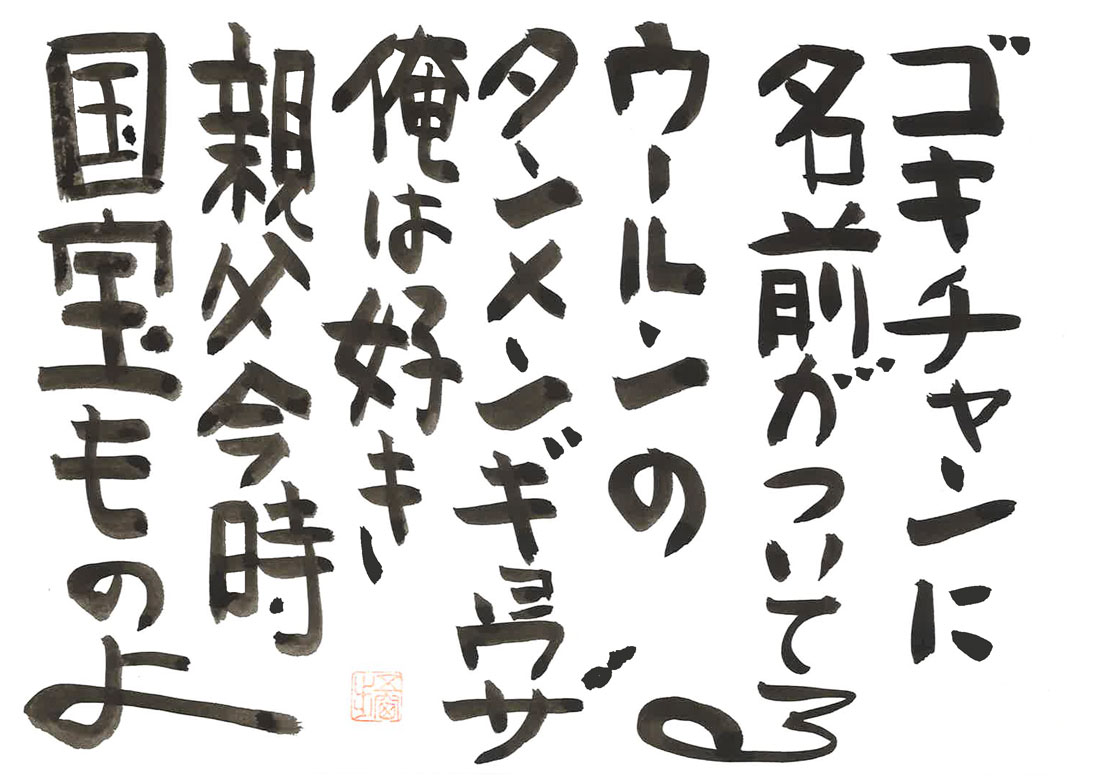 ゴキチャンに
名前がついてる
ウールンの
タンメンギョウザ
俺は好き
親父今時
国宝ものよ